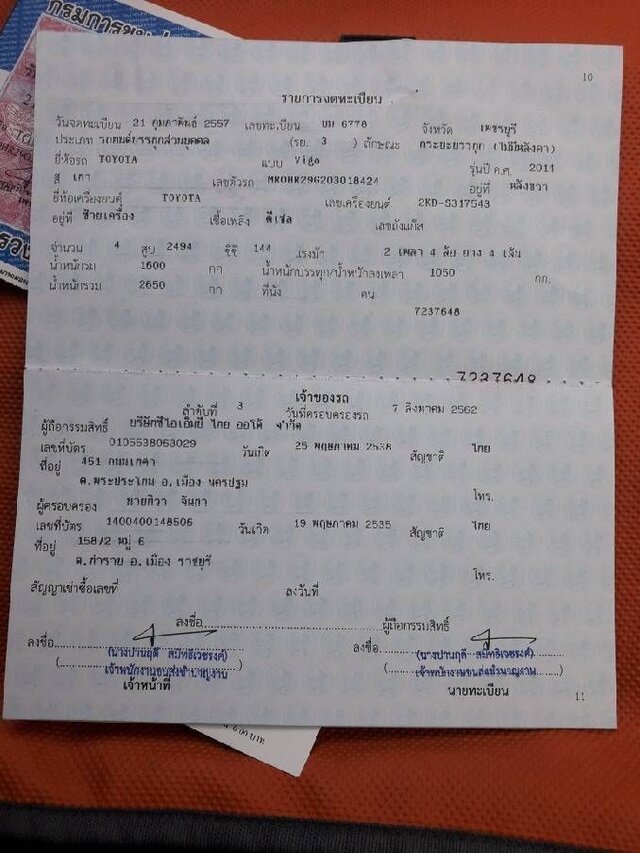 กรมการขนส่ง
10
รายการจดทะเบียน
วันจดทะเบียน 21 กุมภาพันธ์ 2557 เลขทะเบียน บม 6778 จังหวัด เพชรบุรี
ประเภท รถยนต์บรรทุกส่วนบุคคล (รย. 3 ) ลักษณะ กระบะบรรทุก (ไม่มีหลังคา)
ยี่ห้อรถ TOYOTA แบบ Vigo รุ่นปี ค.ศ. 2014
สี เทา เลขตัวรถ MR0HR29G203018424 อยู่ที่ หลังขวา
ยี่ห้อเครื่องยนต์ TOYOTA เลขเครื่องยนต์ 2KD-S317543
อยู่ที่ ซ้ายเครื่อง เชื้อเพลิง ดีเซล เลขถังแก๊ส
จำนวน 4 สูบ 2494 ซีซี 144 แรงม้า 2 เพลา 4 ล้อ ยาง 4 เส้น
น้ำหนักรถ 1600 กก น้ำหนักบรรทุก/น้ำหนักลงเพลา 1050 กก.
น้ำหนักรวม 2650 กก ที่นั่ง คน
7237648
7237648
เจ้าของรถ
ลำดับที่ 3 วันที่ครอบครองรถ 7 สิงหาคม 2562
ผู้ถือกรรมสิทธิ์ บริษัทซีไอเอ็มบี ไทย ออโต้ จำกัด
เลขที่บัตร 0105538063029 วันเกิด 25 พฤษภาคม 2538 สัญชาติ ไทย
ที่อยู่ 451 ถนนเทศา
ต.พระประโทน อ.เมือง นครปฐม โทร.
ผู้ครอบครอง นายทิวา จันทา
เลขที่บัตร 1400400148506 วันเกิด 19 พฤษภาคม 2535 สัญชาติ ไทย
ที่อยู่ 158/2 หมู่ 6
ต.ท่าราบ อ.เมือง ราชบุรี โทร.
สัญญาเช่าซื้อเลขที่ ลงวันที่
ลงชื่อ ผู้ถือกรรมสิทธิ์
ลงชื่อ ลงชื่อ
เจ้าพนักงานขนส่งชำนาญงาน เจ้าพนักงานขนส่งชำนาญงาน
เจ้าหน้าที่ นายทะเบียน
11